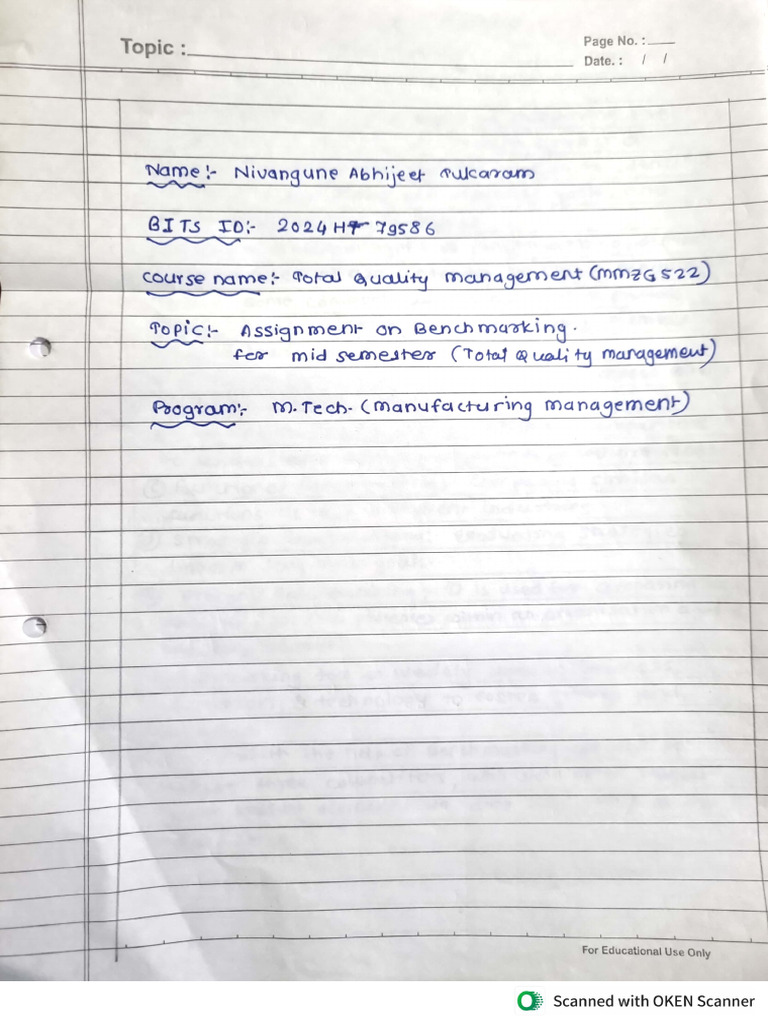 Topic :
Page No. :
Date. : / /
Name:- Nivangune Abhijeet Tukaram
BITS ID:- 2024HT79586
Course name:- Total Quality management (MMZG522)
Topic:- Assignment on Benchmarking.
for mid semester (Total Quality management)
Program:- M.Tech. (manufacturing management)
For Educational Use Only
Scanned with OKEN Scanner